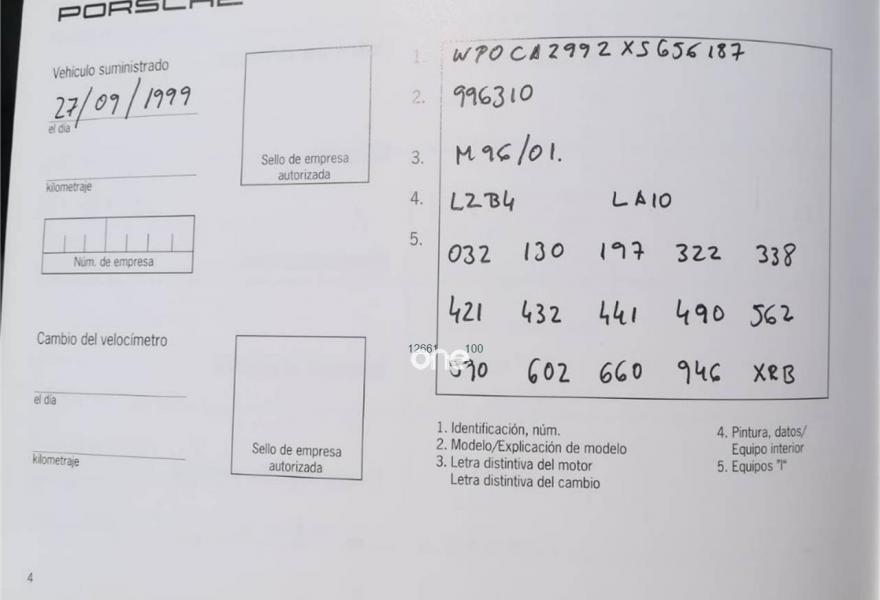 PORSCHE
Vehículo suministrado
27/09/1999
el día
kilometraje
Núm. de empresa
Sello de empresa
autorizada
Cambio del velocímetro
el día
kilometraje
Sello de empresa
autorizada
1. WP0CA2992XS656187
2. 996310
3. M96/01.
4. L2B4 LA10
5. 032 130 197 322 338
421 432 441 490 562
12661 one 100
590 602 660 946 XRB
1. Identificación, núm.
2. Modelo/Explicación de modelo
3. Letra distintiva del motor
Letra distintiva del cambio
4. Pintura, datos/
Equipo interior
5. Equipos "I"
4